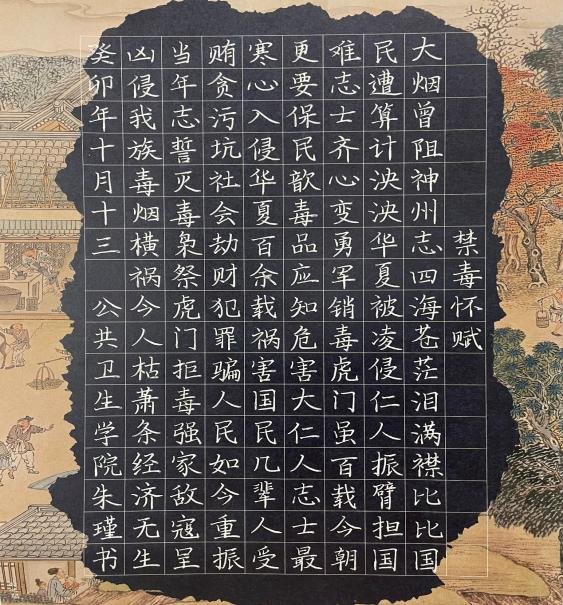 禁毒怀赋
大烟曾阻神州志四海苍茫泪满襟比比国
民遭算计泱泱华夏被凌侵仁人振臂担国
难志士齐心变勇军销毒虎门虽百载今朝
更要保民歆毒品应知危害大仁人志士最
寒心入侵华夏百余载祸害国民几辈人受
贿贪污坑社会劫财犯罪骗人民如今重振
当年志誓灭毒枭祭虎门拒毒强家敌寇呈
凶侵我族毒烟横祸今人枯萧条经济无生
癸卯年十月十三 公共卫生学院朱瑾书